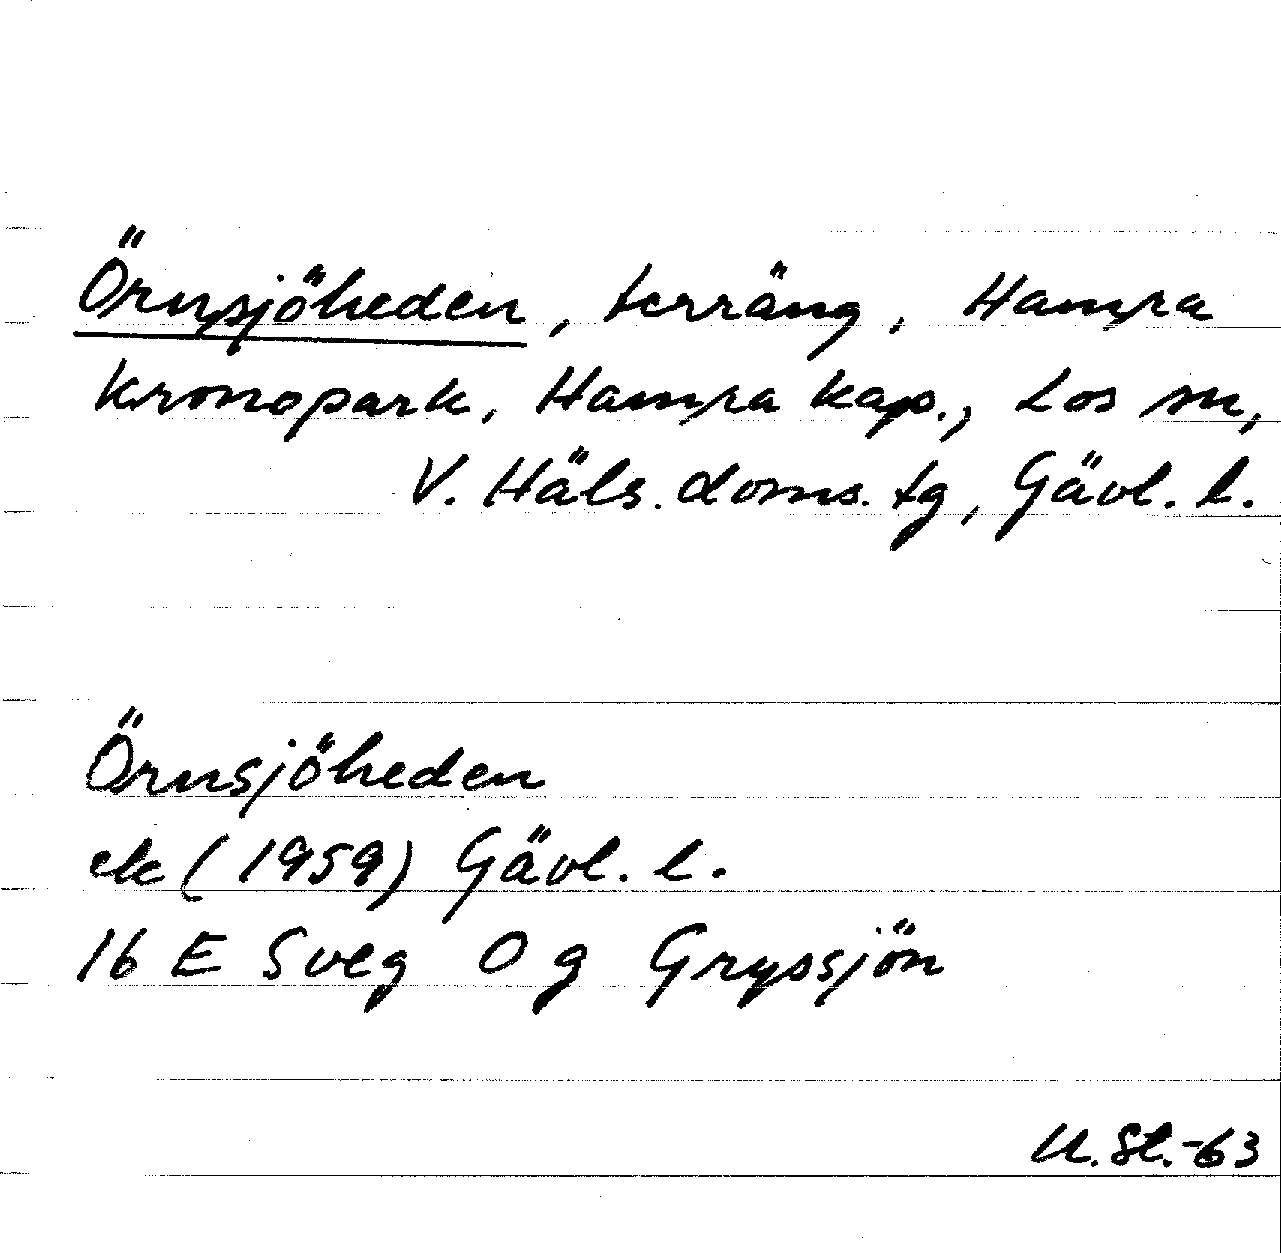 Örnsjöheden, terräng, Hamra
kronopark, Hamra kap., Los sn,
V. Häls. doms. tg, Gävl. l.
Örnsjöheden
ek (1959) Gävl. l.
16 E Sveg 0 g Gryssjön
U. St. -63